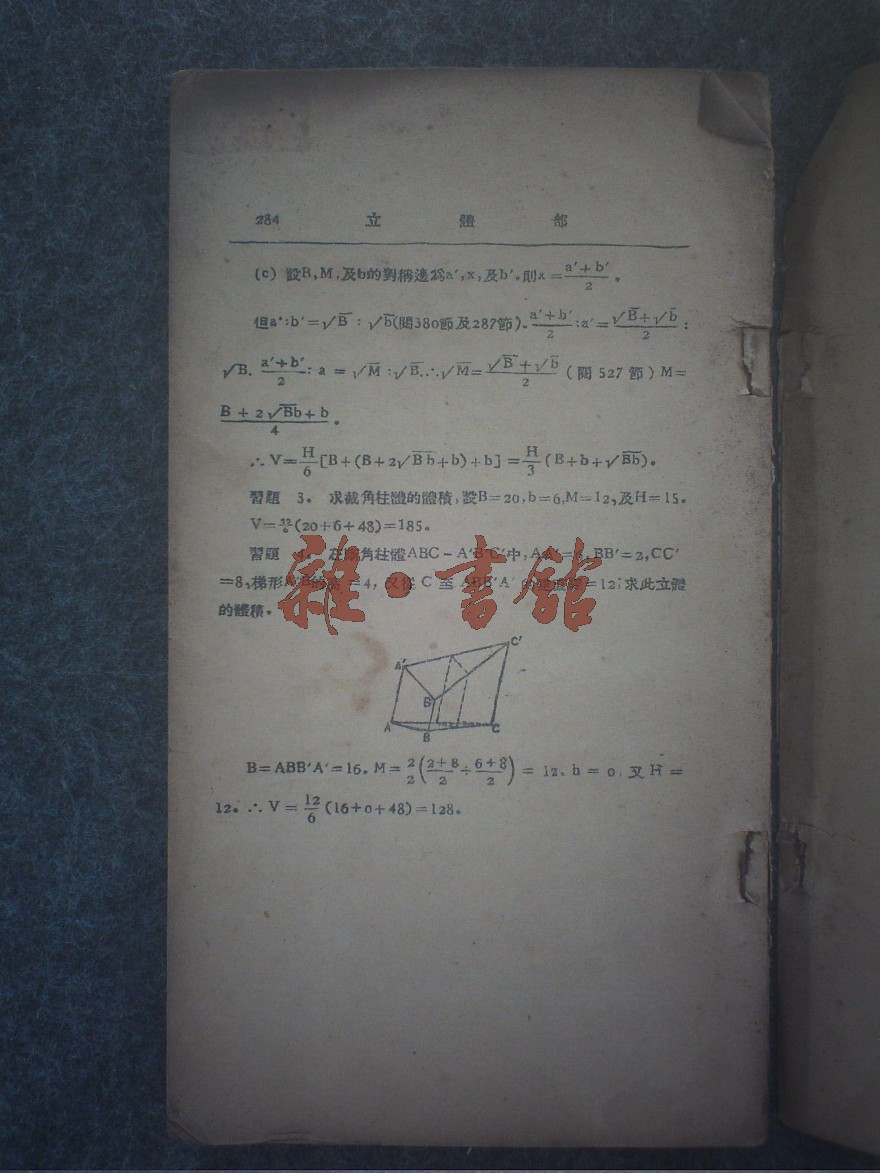 284 立體部
(c) 設B,M,及b的對稱邊爲a′,x,及b′。則x=(a′+b′)/2。
但a′:b′=√B:√b(閱380節及287節)。(a′+b′)/2:a′=(√B+√b)/2:
√B. (a′+b′)/2:a=√M:√B.∴√M=(√B+√b)/2(閱527節)M=
(B+2√Bb+b)/4。
∴V=H/6[B+(B+2√Bb+b)+b]=H/3(B+b+√Bb)。
習題 3。 求截角柱體的體積,設B=20,b=6,M=12,及H=15。
V=(20+6+48)=185。
習題 ABC-A′B′C′中,BB′=2,CC′
=8,梯形=4, C 至 =12,求此立體
的體積。
A′ C′ B′ A B C
B=ABB′A′=16。M=2/2((2+8)/2÷(6+8)/2)=12、b=o,又H=
12。∴V=12/6(16+o+48)=128。
雜·書館